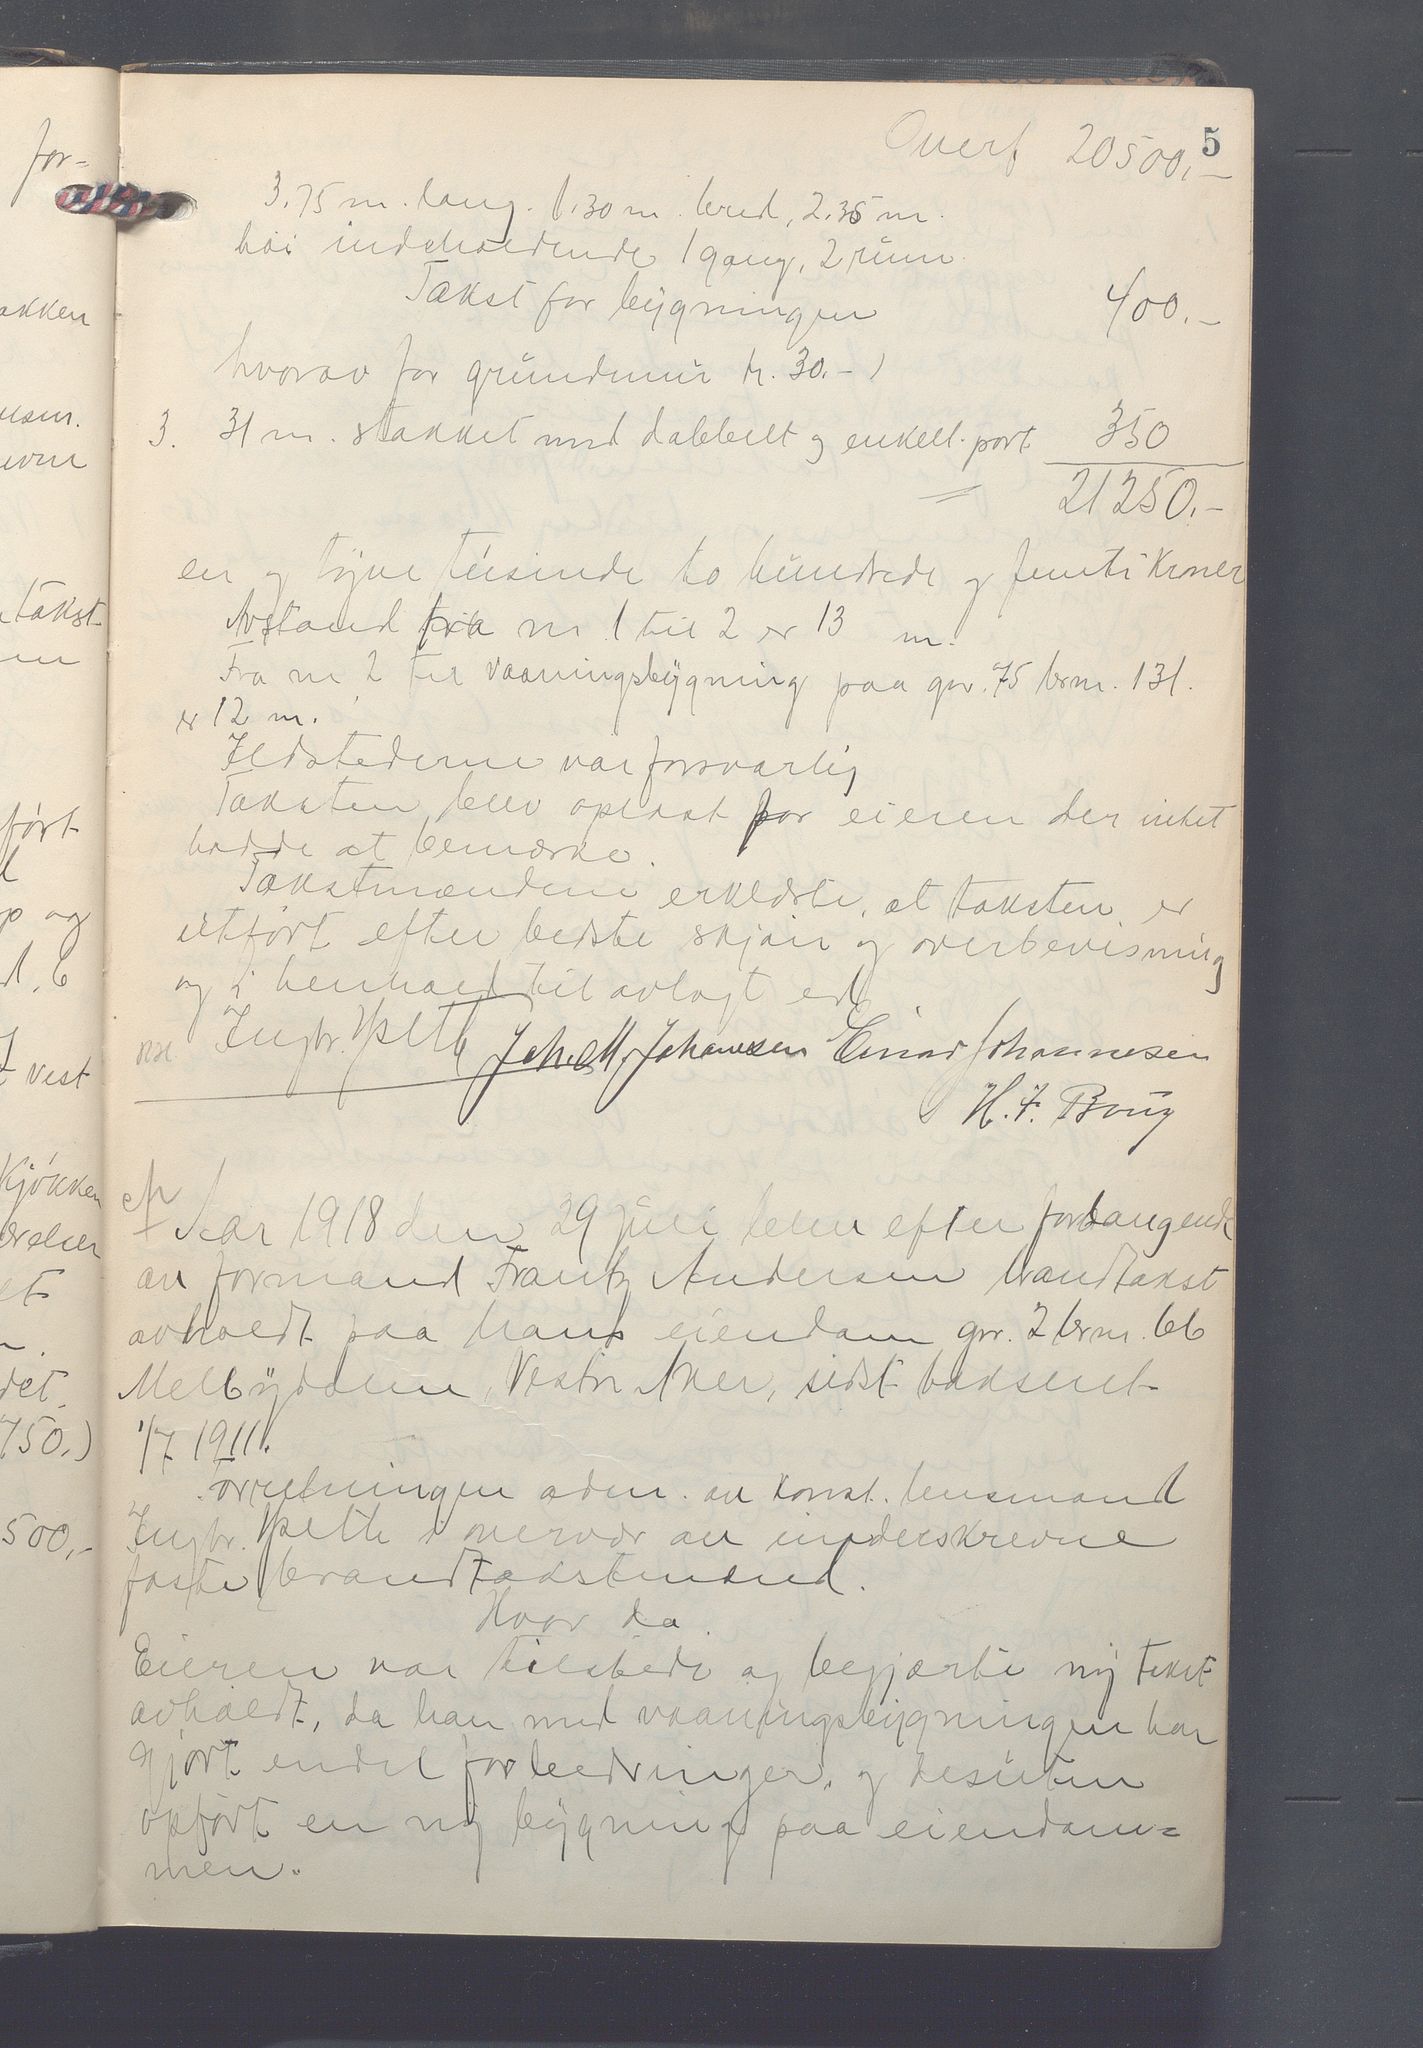 for-
akken
takst
ført
p og
vest
Kjøkken
værelser
et
det
750.)
500,-
5
Overf 20500,-
3.75 m. lang. 1.30 m. bred, 2.35 m.
høi indeholdende 1 gang, 2 rum
Takst for bygningen 400.-
hvorav for grundmur kr. 30.-)
3. 31 m. stakket med dobbelt og enkelt port 350
= 21250.-
en og tyve tusinde to hundrede og femti kroner
Avstand fra nr 1 til 2 er 13 m.
Fra nr 2 til vaaningsbygning paa gnr. 75 brnr. 131.
er 12 m.
Ildstederne var forsvarlig
Taksten blev oplæst for eieren der intet
hadde at bemerke.
Takstmændene erklærte, at taksten er
utført efter bedste skjøn og overbevisning
og i henhold til avlagt ed
Ingbr. Joh. M. Johannesen Einar Johannesen
H. F. Boug
Aar 1918 den 29 juli blev efter forlangende
av formand Frantz Andersen brandtakst
avholdt paa hans eiendom gnr. 2 brnr. 66
Melbydalen, Vestre Aker, sidst taksert
1/7 1911.
Forretningen adm. av konst. lensmand
Ingbr. i nærvær av underskrevne
faste brandtakstmænd.
Hvor da
Eieren var tilstede og begjærte ny takst
avholdt, da han med vaaningsbygningen har
gjort endel forbedringer, og desuten
opført en ny bygning paa eiendom=
men.